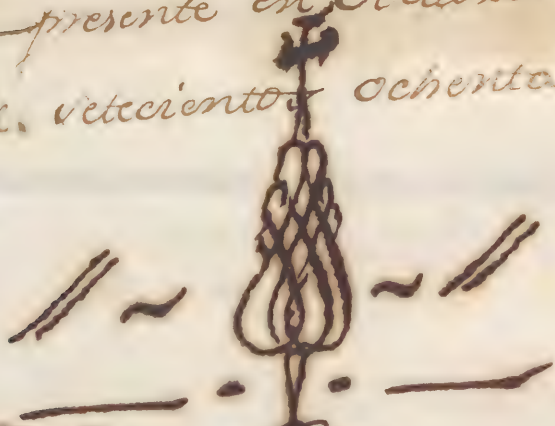 presente en
veteciento ochenta